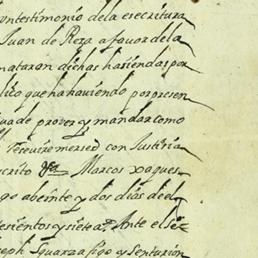 ontestimonio dela esecritura
Juan de Rexa afavor dela
mataran dichas hasiendas por
lico que ha haviendo por presen
va de prover y mandar como
Recevire mersed con Justisia
crito Marcos xaques
go abeinte y dos dias del
tesientos y siete a.s Ante el se
seph Iguarza figo y Senturion